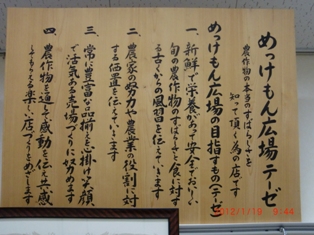 めっけもん広場テーゼ
農作物の本当のすばらしさを
知って頂く為の店です
めっけもん広場の目指すもの(テーゼ)
一、新鮮で栄養があって安全でおいしい
旬の農作物のすばらしさと食に対す
る古くからの風習を伝えていきます
二、農家の努力や農業の役割に対
する価置を伝えていきます
三、常に豊富な品揃えを心掛け笑顔
で活気ある売場づくりに努めます
四、農作物を通して感動を伝え共感
してもらえる楽しい店づくりをめざします
2012/1/19 9:44